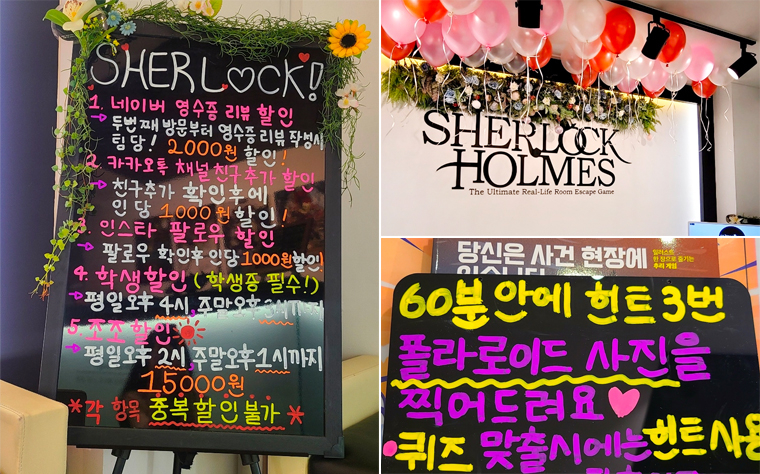 SHERLOCK!
1. 네이버 영수증 리뷰 할인
두번째 방문부터 영수증 리뷰 작성시
팀당! 2,000원 할인!
2. 카카오톡 채널 친구추가 할인
친구추가 확인후에
인당 1000원 할인!
3. 인스타 팔로우 할인
팔로우 확인후 인당 1000원할인!
4. 학생할인 (학생증 필수!)
평일오후 4시, 주말오후
5. 조조할인
평일오후 2시, 주말오후 1시까지
15,000원
*각 항목 중복 할인 불가*
SHERLOCK
HOLMES
The Ultimate Real-Life Room Escape Game
당신은 사건 현장에
일러스트
한 장으로 즐기는
추리 게임
60분 안에 힌트 3번
폴라로이드 사진을
찍어드려요
퀴즈 맞출시에는 힌트 사용